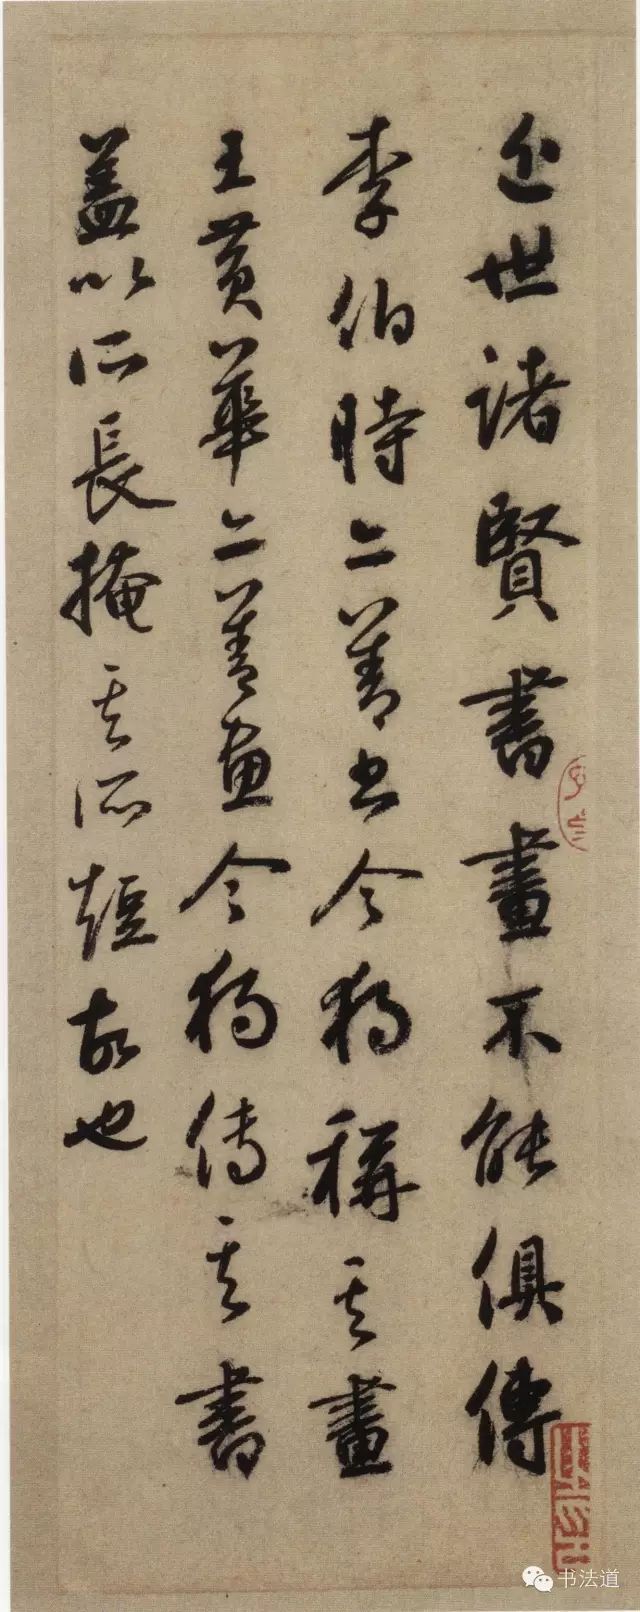 近世諸賢書畫不能俱傳
李伯時亦善書今獨稱其畫
王黃華亦善画今獨傳其書
蓋以所長掩其所短故也
书法道